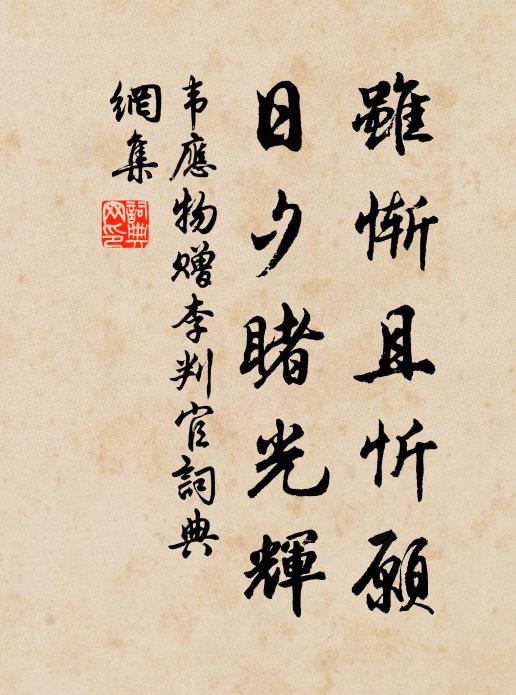 雖慚且忻願
日夕睹光輝
韦應物赠李判官詞典
網集
詞典
网印